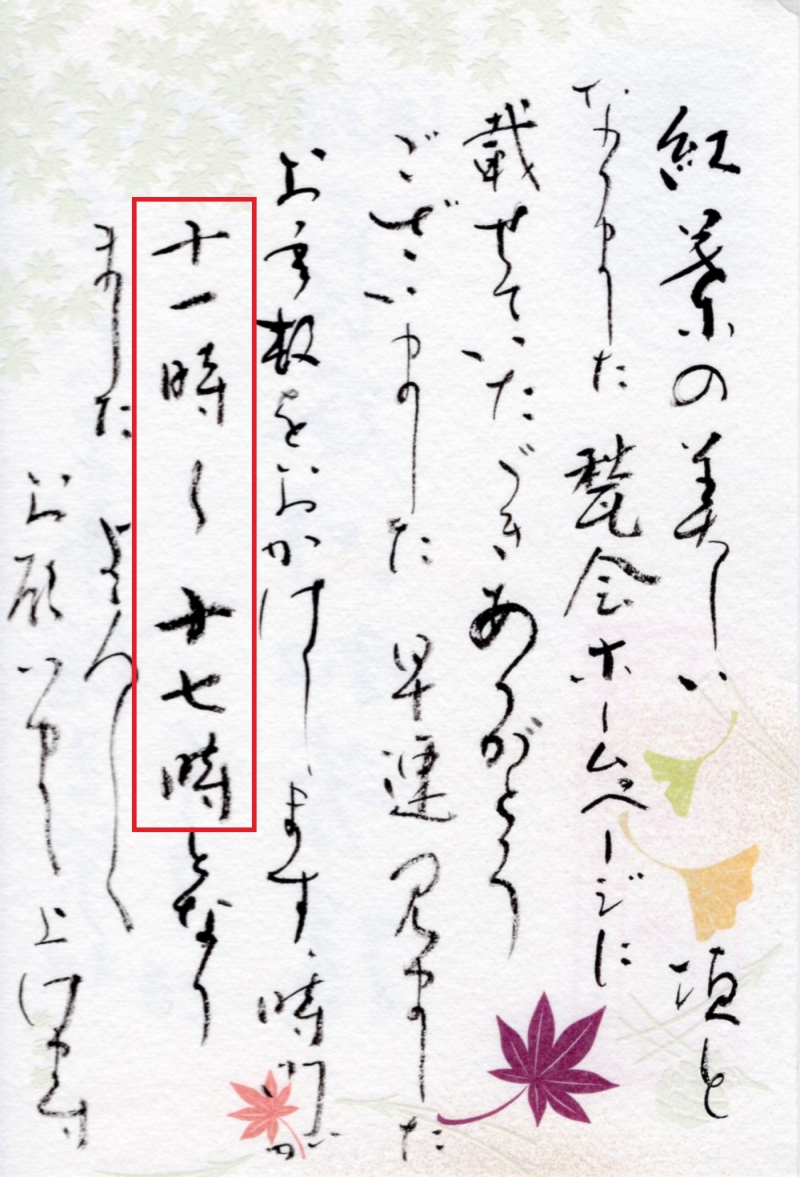 紅葉の美しい 頃と
なりました 甃会ホームページに
載せていただき ありがとう
ございました 早速見ました
お手数をおかけします、時間が
十一時〜十七時となり
ました よろしく
お願いいたし上げます